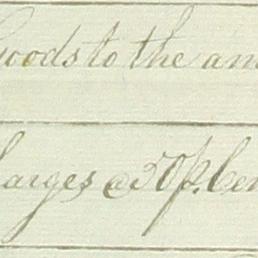 Goods to the am
harges @ 50 p. Cen